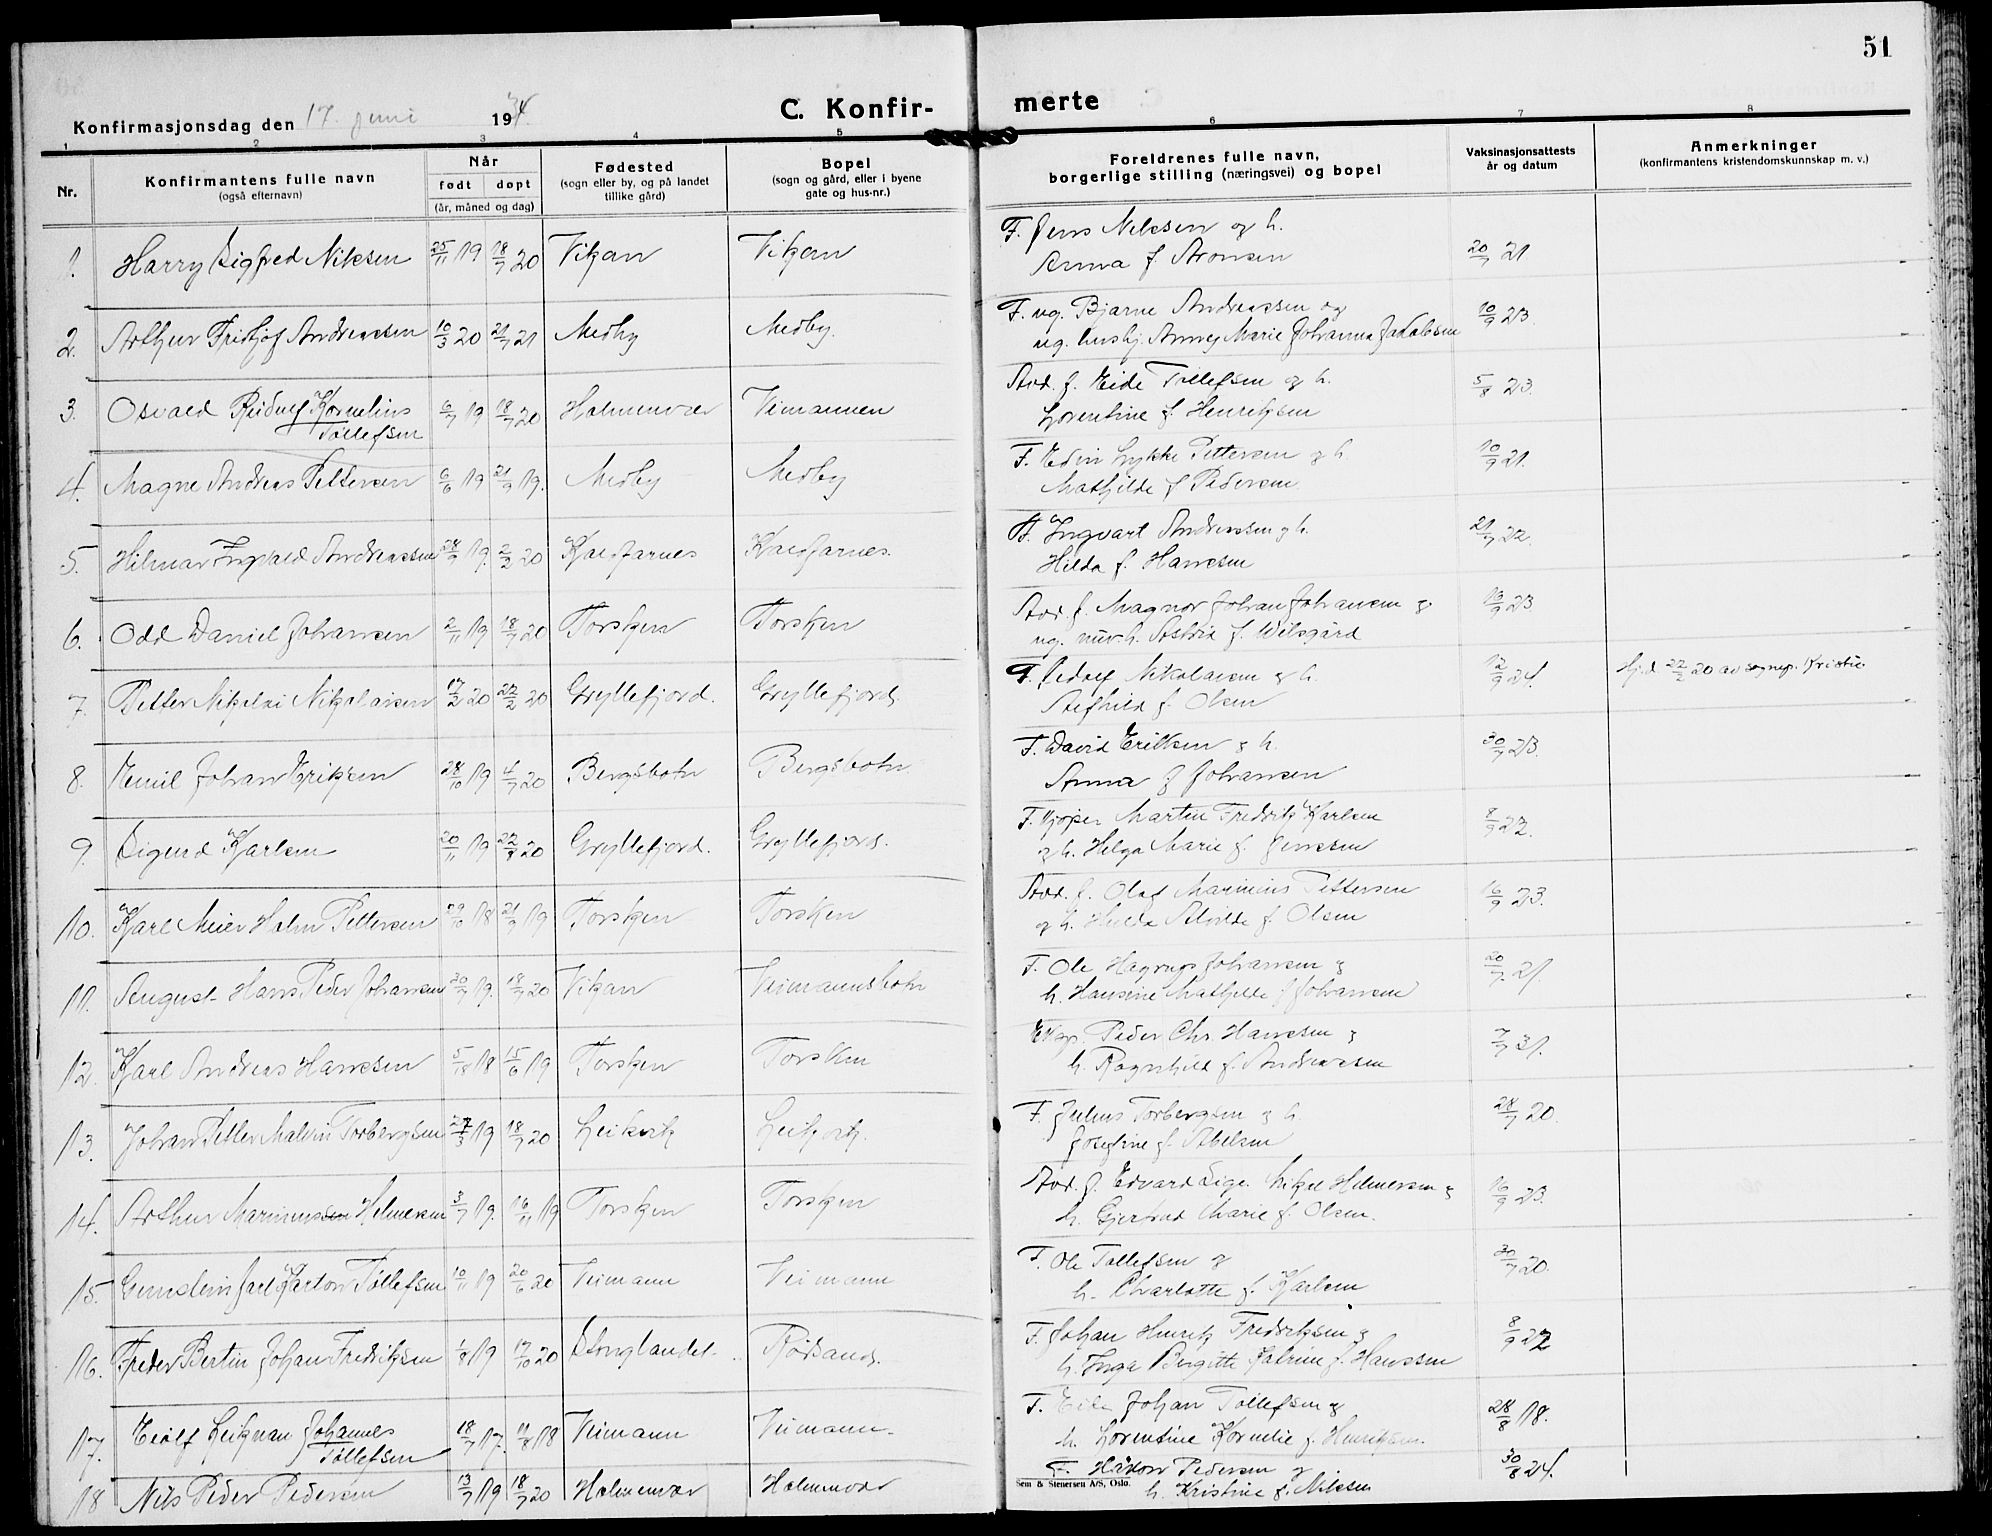 51
C. Konfir-
merte
Konfirmasjonsdag den 17. juni 1934
1 2 3 4 5 6 7 8
Nr.
Konfirmantens fulle navn
(også efternavn)
Når
født døpt
(år, måned og dag)
Fødested
(sogn eller by, og på landet
tillike gård)
Bopel
(sogn og gård, eller i byene
gate og hus-nr.)
Foreldrenes fulle navn,
borgerlige stilling (næringsvei) og bopel
Vaksinasjonsattests
år og datum
Anmerkninger
(konfirmantens kristendomskunnskap m. v.)
F. Jens Nilssen og h.
1. Harry Sigfred Nilssen 25/11 19 18/7 20 Vikan Vikan Anna f. Aronsen 20/7 21.
F. ug. Bjarne Andreassen og
2. Arthur Fridtjof Andreassen 10/3 20 21/7 21 Medby Medby. ug. hushj. Anny Marie Johanna Jakobsen 10/9 23.
Avd. f. Eide Tollefsen og h.
3. Osvald Reidulf Kornelius 6/7 19 18/7 20 Holmenvær Veimannen Lorentine f. Henriksen 5/8 23.
Tollefsen
F. Edin Lykke Pettersen og h.
4. Magne Andreas Pettersen 6/6 19 21/9 19. Medby Medby Mathilde f. Pedersen 10/9 21.
F. Ingvart Andreassen og h.
5. Hilmar Ingvald Andreassen 28/9 19. 2/2 20 Kaldfarnes Kaldfarnes. Hilda f. Hansen 21/7 22.
Avd. f. Magnor Johan Johansen og
6. Odd Daniel Johansen 2/11 19 18/7 20 Torsken Torsken ug. nuv. h. Astrid f. Wilsgård 16/9 23
F. Peder Nikolaisen og h.
7. Petter Nikolai Nikolaisen 17/2 20 22/2 20 Gryllefjord. Gryllefjord. Alfhild f. Olsen 12/9 24. Hj.d. 22/2 20 av sognep. Kristie
F. David Eriksen og h.
8. Emil Johan Eriksen 28/10 19 4/7 20 Bergsbotn Bergsbotn Anna f. Johansen 30/7 23.
F. Kjøpm. Martin Fredrik Karlsen
9. Sigurd Karlsen 20/11 19 22/8 20 Gryllefjord. Gryllefjord. og h. Helga Marie f. Jenssen 8/9 22.
Avd. f. Olaf Marinius Pettersen
10. Karl Meier Holm Pettersen 29/10 18 21/9 19 Torsken Torsken og h. Hulda Alvilde f. Olsen 16/9 23.
F. Ole Johansen og
11. August Hans Peder Johansen 30/7 19. 18/7 20 Vikan Veimannsbotn h. Hansine Mathilde f. Johansen 20/7 21.
Eksp. Peder Chr. Hanssen og
12. Karl Andreas Hanssen 15/6 19 Torsken Torsken h. Ragnhild f. Andreassen 7/7 31.
F. Julius Torbergsen og h.
13. Johan Petter Malvin Torbergsen 19 18/7 20 Leikvik Leikvik. Josefine f. Abelsen 28/7 20.
Avd. f. Edvard Sigv. Mikal Helmersen og
14. Arthur Marinus Helmersen 3/7 19. 16/11 19 Torsken Torsken h. Gjertrud Marie f. Olsen. 16/9 23.
F. Ole Tollefsen og
15. Gunstein Jarl Karton Tollefsen 10/11 19 20/6 20 Veimann Veimann h. Charlotte f. Karlsen 30/7 20.
F. Johan Henrik Fredriksen og
16. Peder Bertin Johan Fredriksen 1/8 19 17/10 20 Stonglandet Rødsand. h. Inga Birgitte Katrine f. Hanssen 8/9 22
F. Eide Johan Tollefsen og
17. Eiolf Leikman Johannes 18/7 17. 11/8 18 Veimann Veimann. h. Lorentine Kornelie f. Henriksen. 28/8 18.
Tollefsen
F. Håkon Pedersen og
18 Nils Peder Pedersen 13/7 19 18/7 20 Holmenvær Holmenvær h. Kristine f. Nilsen 30/8 24.
Sem & Stenersen A/S, Oslo.